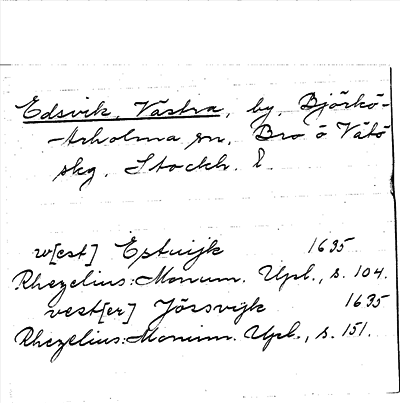 Edsvik, Västra, by, Björkö-
Arholma sn, Bro o Vätö
skg, Stockh. l.
w[est] Estuijk 1635
Rhezelius: Monum. Upl., s. 104.
vest[er] Jössvijk 1635
Rhezelius: Monum. Upl., s. 151.